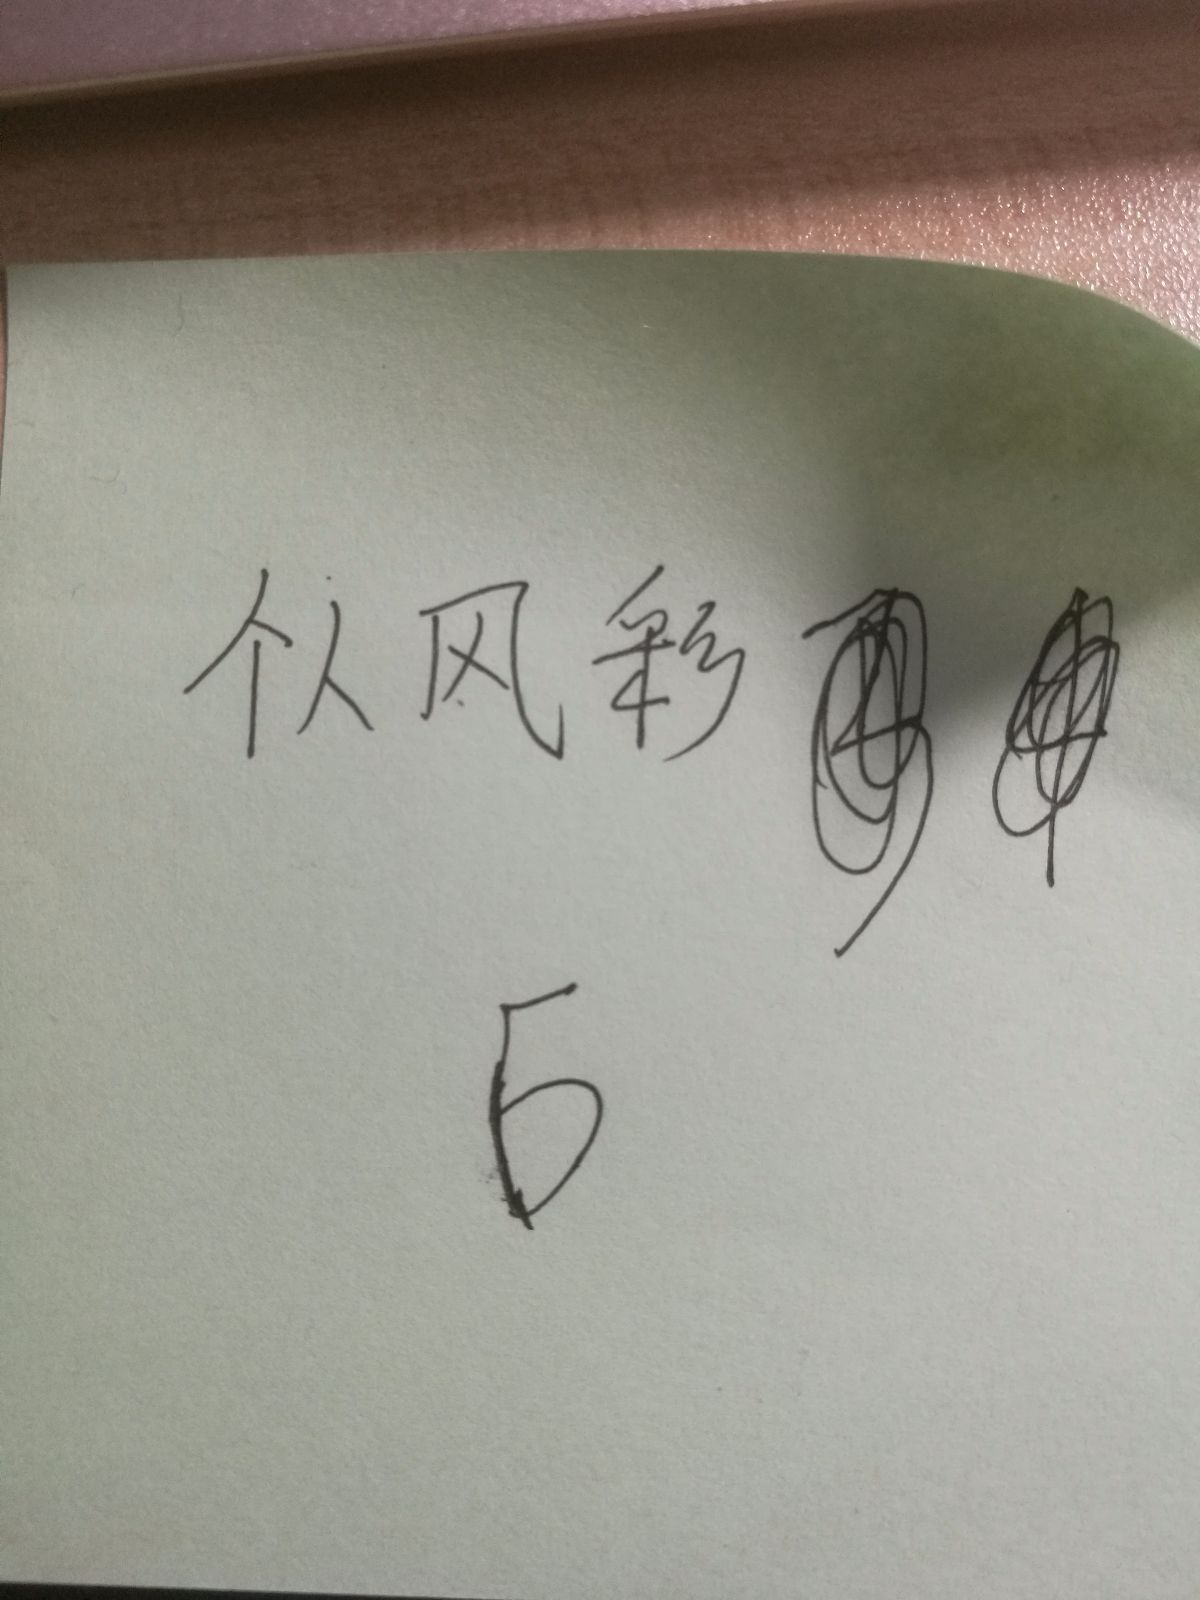 个人风彩
5